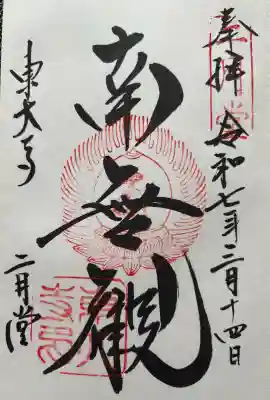 奉拝 令和七年三月十四日
南無観
東大寺
二月堂